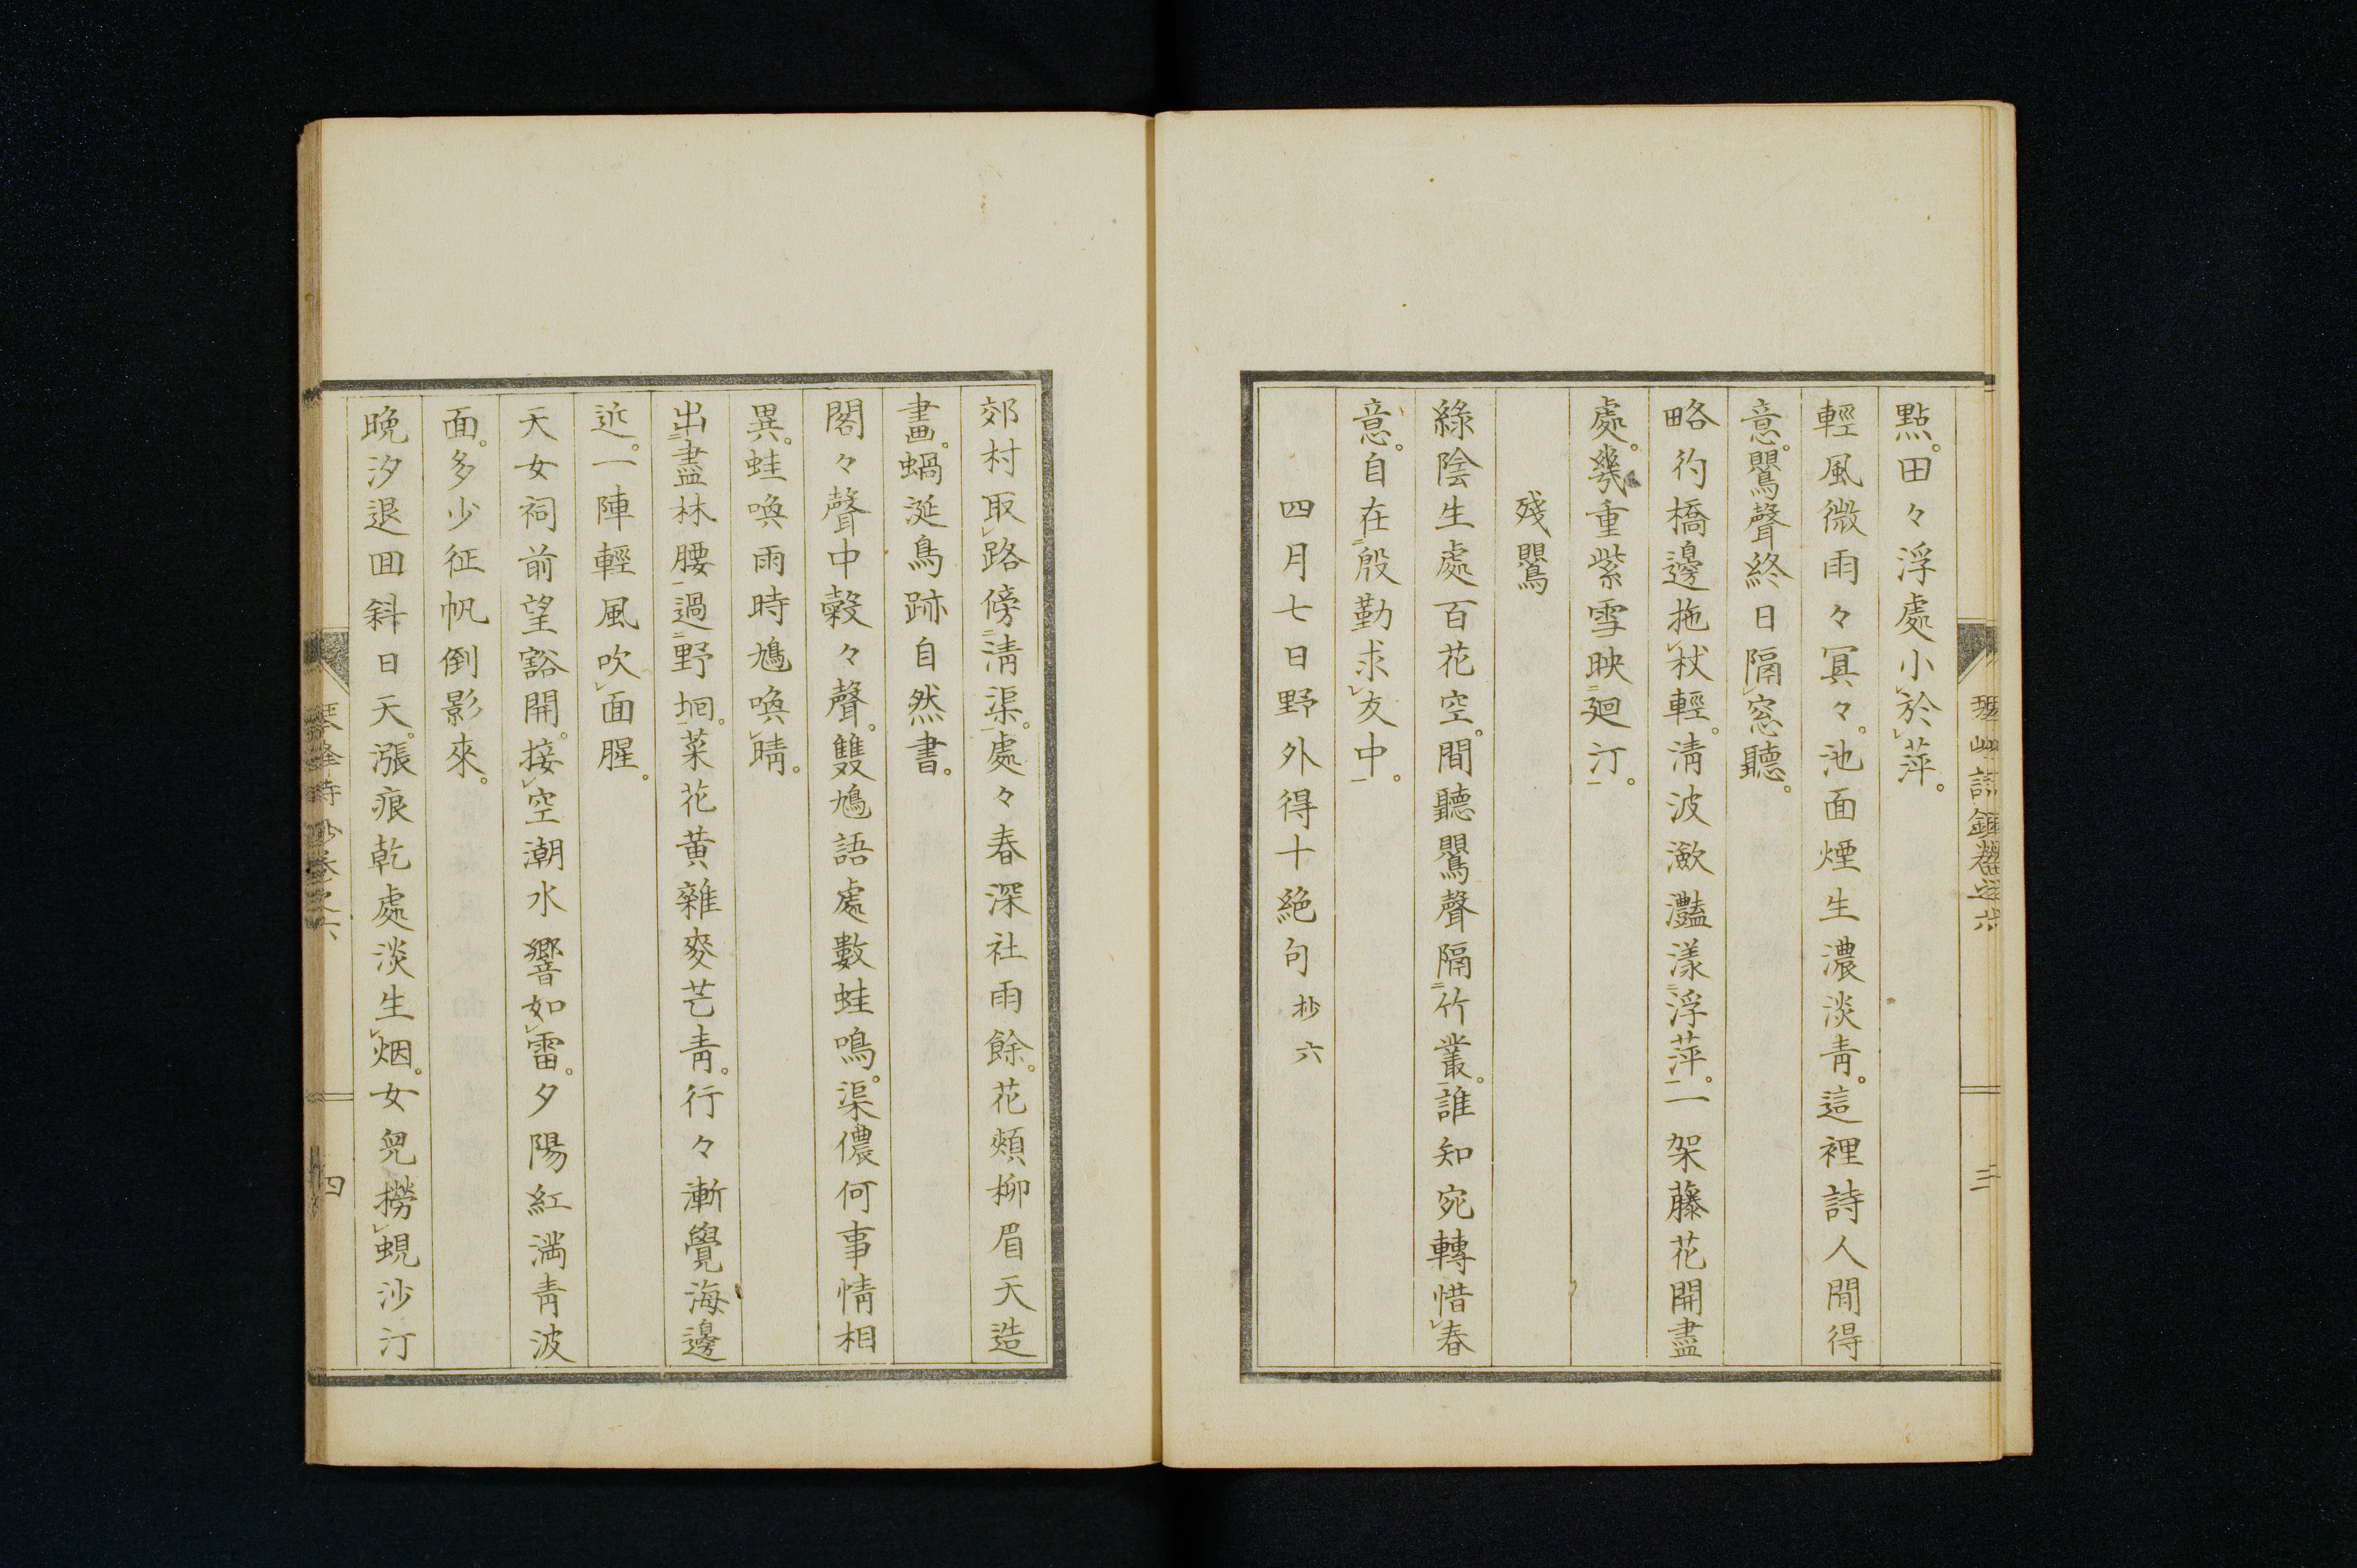 點。田々浮處小於萍。
輕風微雨々冥々。池面煙生濃淡青。這裡詩人閒得
意。鷪聲終日隔窓聽。
略彴橋邊拖杖輕。清波瀲灩漾浮萍。一架藤花開盡
處。幾重紫雪映廻汀。
殘鷪
綠陰生處百花空。間聽鷪聲隔竹叢。誰知宛轉惜春
意。自在殷勤求友中。
四月七日野外得十絕句 抄六
郊村取路傍清渠。處々春深社雨餘。花頰柳眉天造
畫。蝸涎鳥跡自然書。
閣々聲中穀々聲。雙鳩語處數蛙鳴。渠儂何事情相
異。蛙喚雨時鳩喚晴。
出盡林腰過野坰。菜花黃雜麥芒青。行々漸覺海邊
近。一陣輕風吹面腥。
天女祠前望豁開。接空潮水響如雷。夕陽紅満青波
面。多少征帆倒影來。
晚汐退囬斜日天。漲痕乾處淡生烟。女兒撈蜆沙汀
四